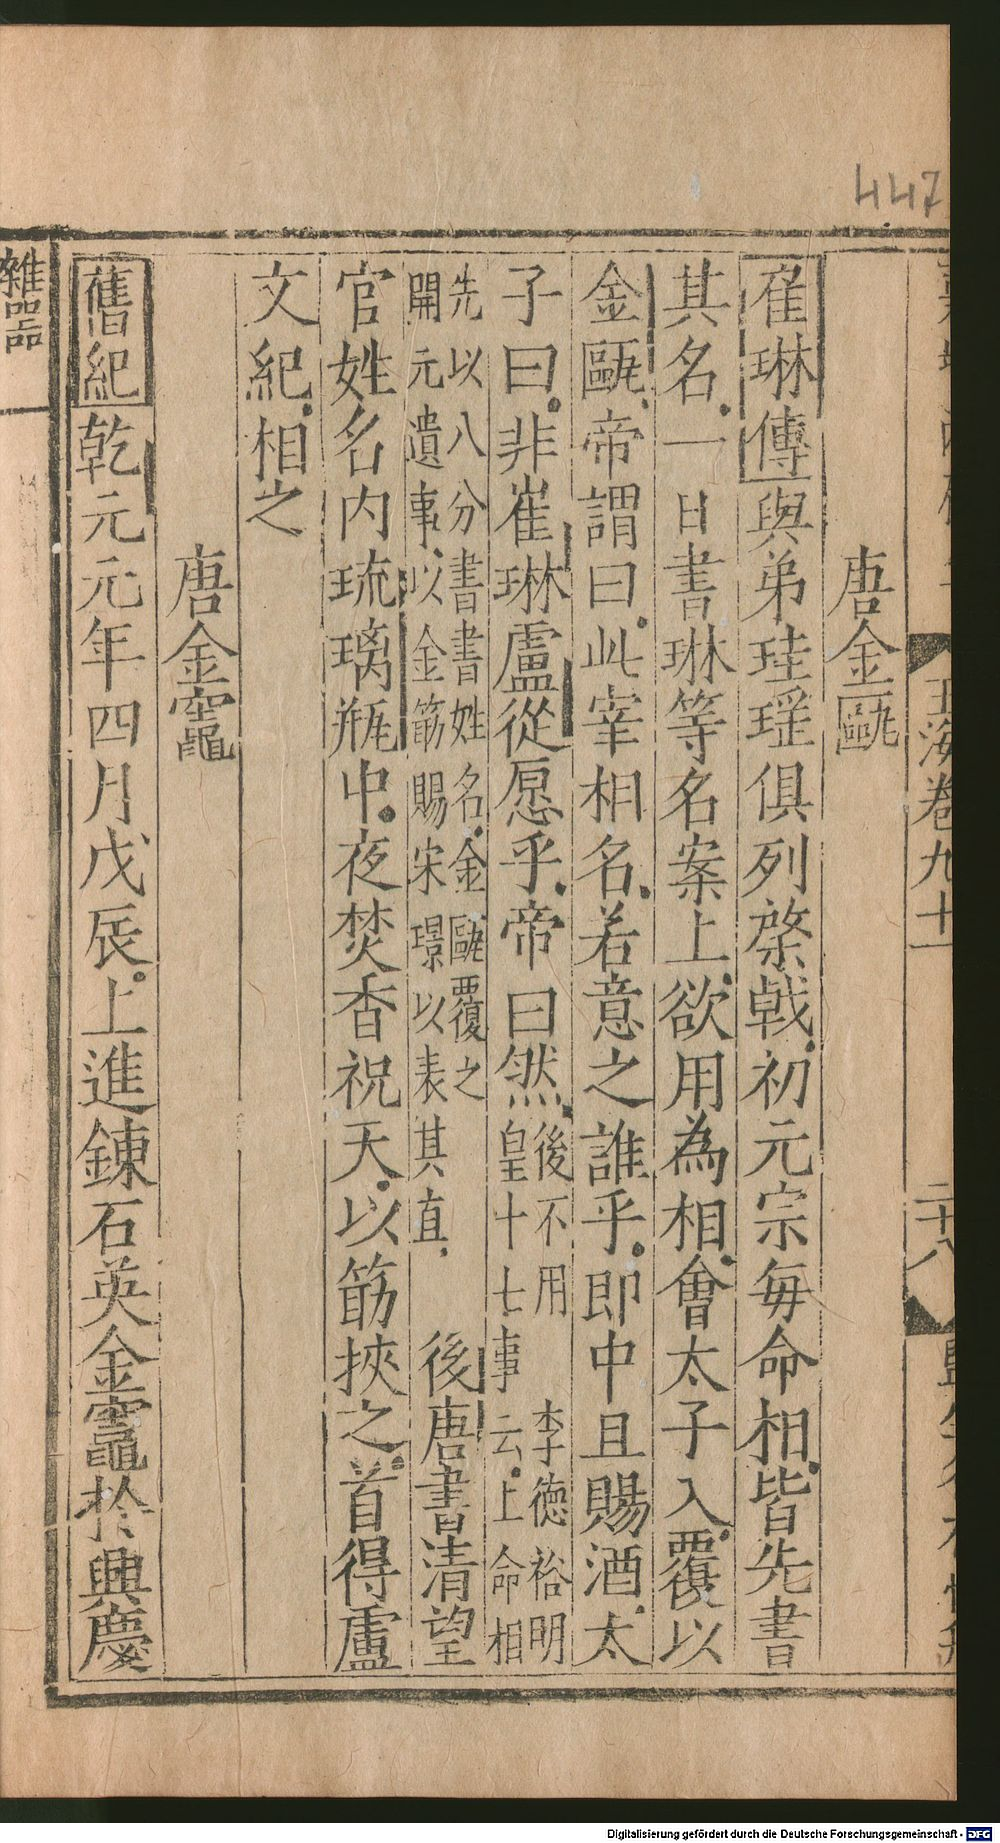 447
玉海卷九十一
二十八
唐金甌
崔琳傳與弟珪瑶俱列棨戟初元宗每命相皆先書
其名一日書琳等名案上欲用為相會太子入覆以
金甌帝謂曰此宰相名若意之誰乎即中且賜酒太
子曰非崔琳盧從愿乎帝曰然後不用
皇十七事
李德裕明
云上命相
先以八分書書姓名金甌覆之
開元遺事以金筯賜宋璟以表其直
後唐書清望
官姓名内琉璃瓶中夜焚香祝天以筯挾之首得盧
文紀相之
唐金竈
舊紀乾元元年四月戊辰上進鍊石英金竈於興慶
雜器
Digitalisierung gefördert durch die Deutsche Forschungsgemeinschaft - DFG